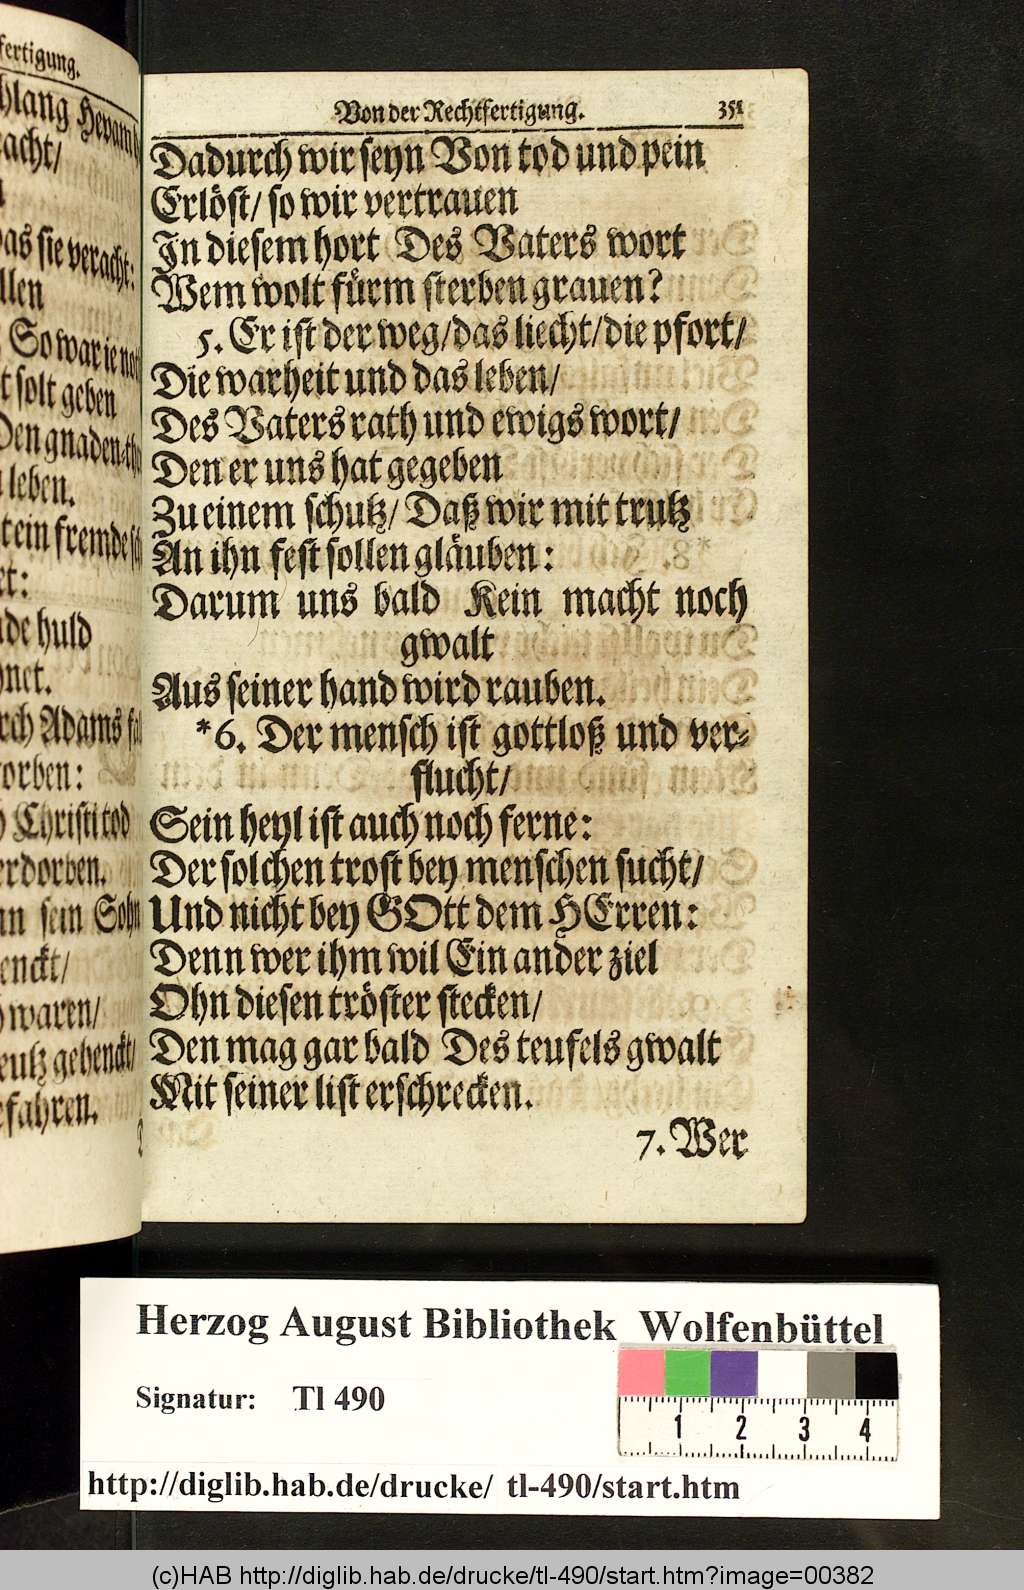 fertigung.
hlang Hevam
acht/
as sie veracht:
llen
So war ie not
t solt geben
Den gnaden-
leben.
ein fremde
et:
de huld
net.
rch Adams
orben:
Christi tod
erdorben.
nn sein Sohn
enckt/
waren/
eutz gehenckt/
efahren.
Von der Rechtfertigung. 351
Dadurch wir seyn Von tod und pein
Erlöst/ so wir vertrauen
In diesem hort Des Vaters wort
Wem wolt fürm sterben grauen?
5. Er ist der weg/das liecht/die pfort/
Die warheit und das leben/
Des Vaters rath und ewigs wort/
Den er uns hat gegeben
Zu einem schutz/ Daß wir mit trutz
An ihn fest sollen gläuben:
Darum uns bald Kein macht noch
gwalt
Aus seiner hand wird rauben.
*6. Der mensch ist gottloß und ver-
flucht/
Sein heyl ist auch noch ferne:
Der solchen trost bey menschen sucht/
Und nicht bey GOtt dem HErren:
Denn wer ihm wil Ein ander ziel
Ohn diesen tröster stecken/
Den mag gar bald Des teufels gwalt
Mit seiner list erschrecken.
7. Wer
Herzog August Bibliothek Wolfenbüttel
Signatur: Tl 490
1 2 3 4
http://diglib.hab.de/drucke/ tl-490/start.htm
(c)HAB http://diglib.hab.de/drucke/tl-490/start.htm?image=00382